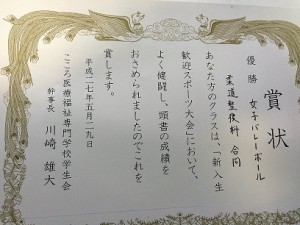 賞状
優勝 女子バレーボール
柔道整復科 合同
あなた方のクラスは、「新入生
歓迎スポーツ大会」において、
よく健闘し、頭書の成績を
おさめられましたのでこれを
賞します。
平成二七年五月二九日
こころ医療福祉専門学校学生会
幹事長 川崎 雄大